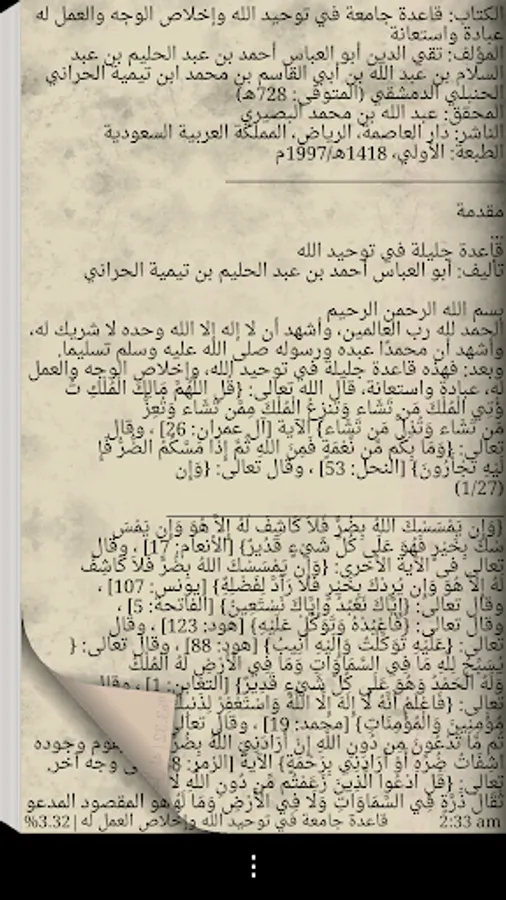 الكتاب: قاعدة جامعة في توحيد الله وإخلاص الوجه والعمل له
عبادة واستعانة
المؤلف: تقي الدين أبو العباس أحمد بن عبد الحليم بن عبد
السلام بن عبد الله بن أبي القاسم بن محمد ابن تيمية الحراني
الحنبلي الدمشقي (المتوفى: 728هـ)
المحقق: عبد الله بن محمد البصيري
الناشر: دار العاصمة، الرياض، المملكة العربية السعودية
الطبعة: الأولي، 1418هـ/1997م
مقدمة
..
قاعدة جليلة في توحيد الله
تأليف: أبو العباس أحمد بن عبد الحليم بن تيمية الحراني
بسم الله الرحمن الرحيم
الحمد لله رب العالمين، وأشهد أن لا إله إلا الله وحده لا شريك له،
وأشهد أن محمدًا عبده ورسوله صلى الله عليه وسلم تسليما.
وبعد: فهذه قاعدة جليلة في توحيد الله، وإخلاص الوجه والعمل
له، عبادة واستعانة، قال الله تعالى: {قُلِ اللَّهُمَّ مَالِكَ الْمُلْكِ تُ
ؤْتِي الْمُلْكَ مَن تَشَاء وَتَنزِعُ الْمُلْكَ مِمَّن تَشَاء وَتُعِزُّ
مَن تَشَاء وَتُذِلُّ مَن تَشَاء} الآية [آل عمران: 26] ، وقال
تعالى: {وَمَا بِكُم مِّن نِّعْمَةٍ فَمِنَ اللّهِ ثُمَّ إِذَا مَسَّكُمُ الضُّرُّ فَإِ
لَيْهِ تَجْأَرُونَ} [النحل: 53] ، وقال تعالى: {وَإِن
(1/27)
{وَإِن يَمْسَسْكَ اللّهُ بِضُرٍّ فَلاَ كَاشِفَ لَهُ إِلاَّ هُوَ وَإِن يَمْسَ
سْكَ بِخَيْرٍ فَهُوَ عَلَى كُلِّ شَيْءٍ قَدُيرٌ} [الأنعام: 17] ، وقال
تعالى في الآية الأخرى: {وَإِن يَمْسَسْكَ اللّهُ بِضُرٍّ فَلاَ كَاشِفَ
لَهُ إِلاَّ هُوَ وَإِن يُرِدْكَ بِخَيْرٍ فَلاَ رَآدَّ لِفَضْلِهِ} [يونس: 107] ،
وقال تعالى: {إِيَّاكَ نَعْبُدُ وإِيَّاكَ نَسْتَعِينُ} [الفاتحة: 5] ،
وقال تعالى: {فَاعْبُدْهُ وَتَوَكَّلْ عَلَيْهِ} [هود: 123] ، وقال
تعالى: {عَلَيْهِ تَوَكَّلْتُ وَإِلَيْهِ أُنِيبُ} [هود: 88] ، وقال تعالى: {
يُسَبِّحُ لِلَّهِ مَا فِي السَّمَاوَاتِ وَمَا فِي الْأَرْضِ لَهُ الْمُلْكُ
وَلَهُ الْحَمْدُ وَهُوَ عَلَى كُلِّ شَيْءٍ قَدِيرٌ} [التغابن: 1] ، وقال
تعالى: {فَاعْلَمْ أَنَّهُ لَا إِلَهَ إِلَّا اللَّهُ وَاسْتَغْفِرْ لِذَنبِكَ
مُؤْمِنِينَ وَالْمُؤْمِنَاتِ} [محمد: 19] ، وقال تعالى
تُم مَّا تَدْعُونَ مِن دُونِ اللَّهِ إِنْ أَرَادَنِيَ اللَّهُ بِضُرٍّ وجوده
اشِفَاتُ ضُرِّهِ أَوْ أَرَادَنِي بِرَحْمَةٍ} الآية [الزمر: وجه آخر.
تعالى: {قُلِ ادْعُوا الَّذِينَ زَعَمْتُم مِّن دُونِ اللَّهِ لَا
ثْقَالَ ذَرَّةٍ فِي السَّمَاوَاتِ وَلَا فِي الْأَرْضِ وَمَا لَ هو المقصود المدعو
2:33 am قاعدة جامعة في توحيد الله وإخلاص العمل له|3.32%